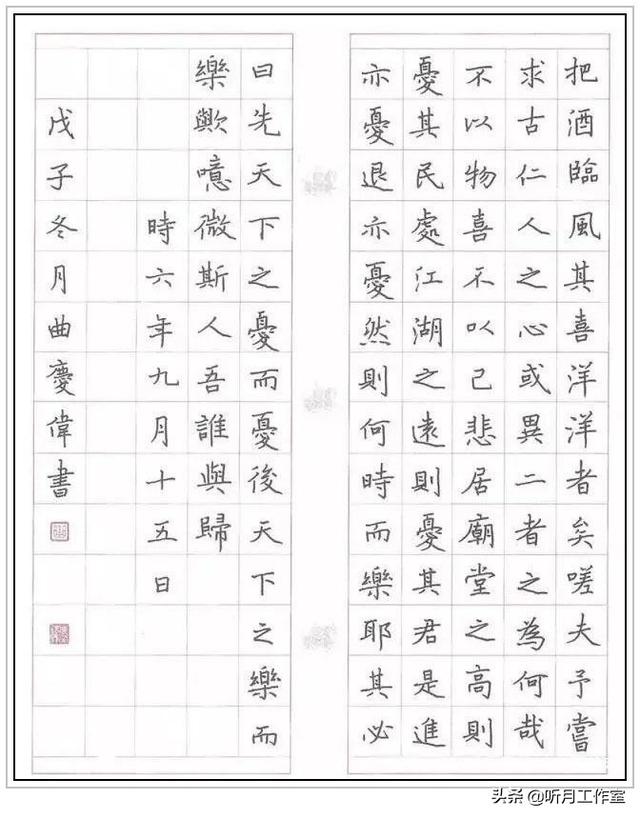 把酒臨風其喜洋洋者矣嗟夫予嘗
求古仁人之心或異二者之為何哉
不以物喜不以己悲居廟堂之高則
憂其民處江湖之遠則憂其君是進
亦憂退亦憂然則何時而樂耶其必
曰先天下之憂而憂後天下之樂而
樂歟噫微斯人吾誰與歸
時六年九月十五日
戊子冬月曲慶偉書
头条 @听月工作室